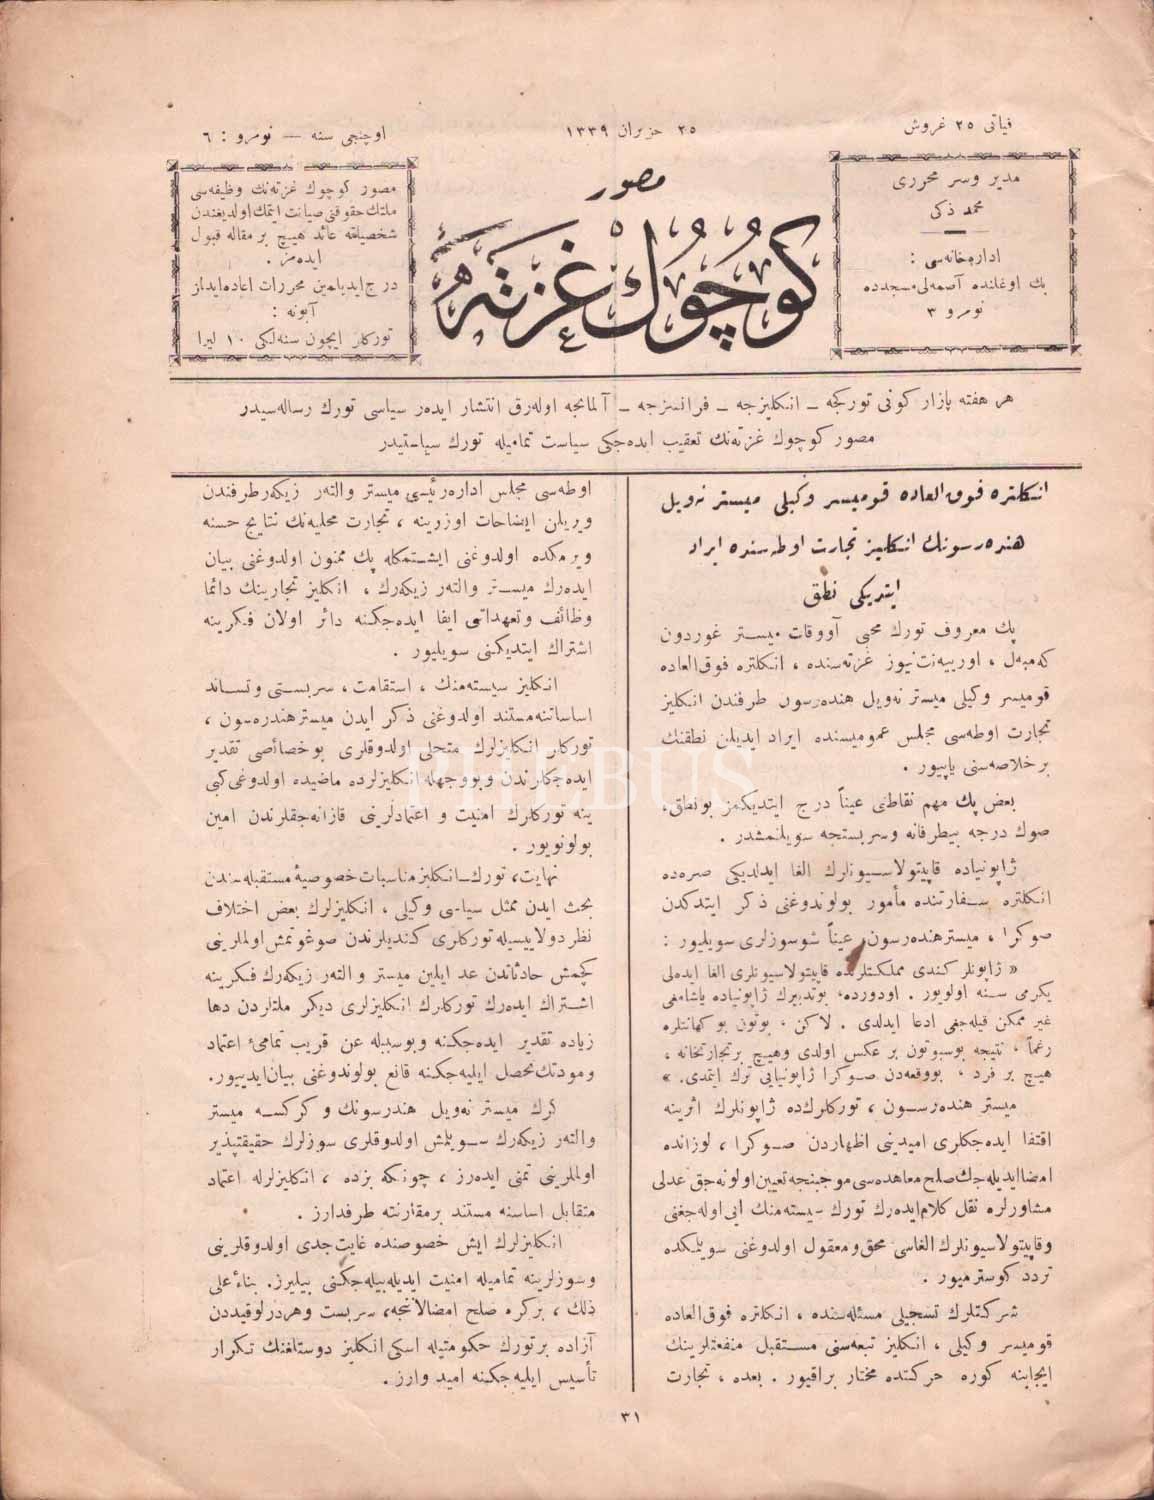 فیاتی ۲۵ غروش
۲۵ حزیران ۱۳۳۹
اوچنجی سنه — نومرو : ٦
مدیر و سر محرری
محمد ذکی
اداره‌خانه‌سی :
بك اوغلنده آصمه‌لی مسجدده
نومرو ۳
مصور
كوچوك غزته
مصور كوچوك غزته‌نك وظیفه‌سی
ملتك حقوقنی صیانت ایتمك اولدیغندن
شخصیاته عائد هیچ بر مقاله قبول
ایده‌مز .
درج ایدیلمین محررات اعاده ایدلمز
آبونه :
توركلر ایچون سنه‌لكی ۱۰ لیرا
هر هفته پازار كونی توركجه ـ انكلیزجه ـ فرانسزجه ـ آلمانجه اوله‌رق انتشار ایدەر سیاسی تورك رساله‌سیدر
مصور كوچوك غزته‌نك تعقیب ایده‌جكی سیاست تمامیله تورك سیاستیدر
انكلتره فوق العاده قومیسر وكیلی میستر نه‌ویل
هنده‌رسونك انكلیز تجارت اوطه‌سنده ایراد
ایتدیكی نطق
پك معروف تورك محبی آووقات میستر غوردون
كه‌مبه‌ل ، اورییه‌نت‌نیوز غزته‌سنده ، انكلتره فوق العاده
قومیسر وكیلی میستر نه‌ویل هنده‌رسون طرفندن انكلیز
تجارت اوطه‌سی مجلس عمومیسنده ایراد ایدیلن نطقنك
بر خلاصه‌سنی یاپیور .
بعض پك مهم نقاطنی عیناً درج ایتدیكمز بو نطق ،
صوك درجه بیطرفانه و سربستجه سویلنمشدر .
ژاپونیاده قاپیتولاسیونلرك الغا ایدلدیكی صره‌ده
انكلتره سفارتنده مأمور بولوندوغنی ذكر ایتدكدن
صوكرا ، میستر هنده‌رسون ، عیناً شو سوزلری سویلیور :
« ژاپونلر كندی مملكتلرنده قاپیتولاسیونلری الغا ایده‌لی
یكرمی سنه اولویور . او دوره‌ده ، بو تدبیرك ژاپونیاده یاشامغی
غیر ممكن قیله‌جغی ادعا ایدلدی . لاكن ، بوتون بو كهانتلره
رغماً ، نتیجه بوسبوتون بر عكس اولدی و هیچ بر تجارتخانه ،
هیچ بر فرد ، بو وقعه‌دن صوكرا ژاپونیایی ترك ایتمدی . »
میستر هنده‌رسون ، توركلرك‌ده ژاپونلرك اثرینه
اقتفا ایده‌جكلری امیدینی اظهاردن صوكرا ، لوزانده
امضا ایدیله‌جك صلح معاهده‌سی موجبنجه تعیین اولونه‌جق عدلی
مشاورلره نقل كلام ایده‌رك تورك سیسته‌منك ایی اوله‌جغنی
و قاپیتولاسیونلرك الغاسی محق و معقول اولدوغنی سویلمكده
تردد كوسترمیور .
شركتلرك تسجیلی مسئله‌سنده ، انكلتره فوق العاده
قومیسر وكیلی ، انكلیز تبعه‌سنی مستقبل منفعتلرینك
ایجابنه كوره حركتده مختار براقیور . بعده ، تجارت
اوطه‌سی مجلس اداره رئیسی میستر والته‌ر زیكه‌ر طرفندن
ویریلن ایضاحات اوزرینه ، تجارت محلیه‌نك نتایج حسنه
ویرمكده اولدوغنی ایشتمكله پك ممنون اولدوغنی بیان
ایده‌رك میستر والته‌ر زیكه‌رك ، انكلیز تجارینك دائما
وظائف و تعهداتی ایفا ایده‌جكنه دائر اولان فكرینه
اشتراك ایتدیكنی سویلیور .
انكلیز سیسته‌منك ، استقامت ، سربستی و تساند
اساساتنه مستند اولدوغنی ذكر ایدن میستر هنده‌رسون ،
توركلر انكلیزلرك متحلی اولدوقلری بو خصائصی تقدیر
ایده‌جكلرندن و بو وجهله انكلیزلرده ماضیده اولدوغی كبی
ینه توركلرك امنیت و اعتمادلرینی قازانه‌جقلرندن امین
بولونویور .
نهایت ، تورك ـ انكلیز مناسبات خصوصیهٔ مستقبله‌سندن
بحث ایدن ممثل سیاسی وكیلی ، انكلیزلرك بعض اختلاف
نظر دولاییسیله توركلری كندیلرندن صوغوتمش اولملرینی
كچمش حادثاتدن عد ایلین میستر والته‌ر زیكه‌رك فكرینه
اشتراك ایده‌رك توركلرك انكلیزلری دیكر ملتلردن دها
زیاده تقدیر ایده‌جكنه و بو سببله عن قریب تمامیٔ اعتماد
و مودتك تحصل ایلیه‌جكنه قانع بولوندوغنی بیان ایدییور.
كرك میستر نه‌ویل هندرسونك و كركسه میستر
والته‌ر زیكه‌رك سویلمش اولدوقلری سوزلرك حقیقتپذیر
اولملرینی تمنی ایده‌رز ، چونكه بزده ، انكلیزلرله اعتماد
متقابل اساسنه مستند بر مقارنته طرفدارز .
انكلیزلرك ایش خصوصنده غایت جدی اولدوقلرینی
و سوزلرینه تمامیله امنیت ایدیله‌بیله‌جكنی بیلیرز. بناءً علی
ذلك ، بر كره صلح امضالاننجه ، سربست و هر درلو قیددن
آزاده بر تورك حكومتیله اسكی انكلیز دوستلغنك تكرار
تأسیس ایلیه‌جكنه امید وارز .
۳۱
PHEBUS